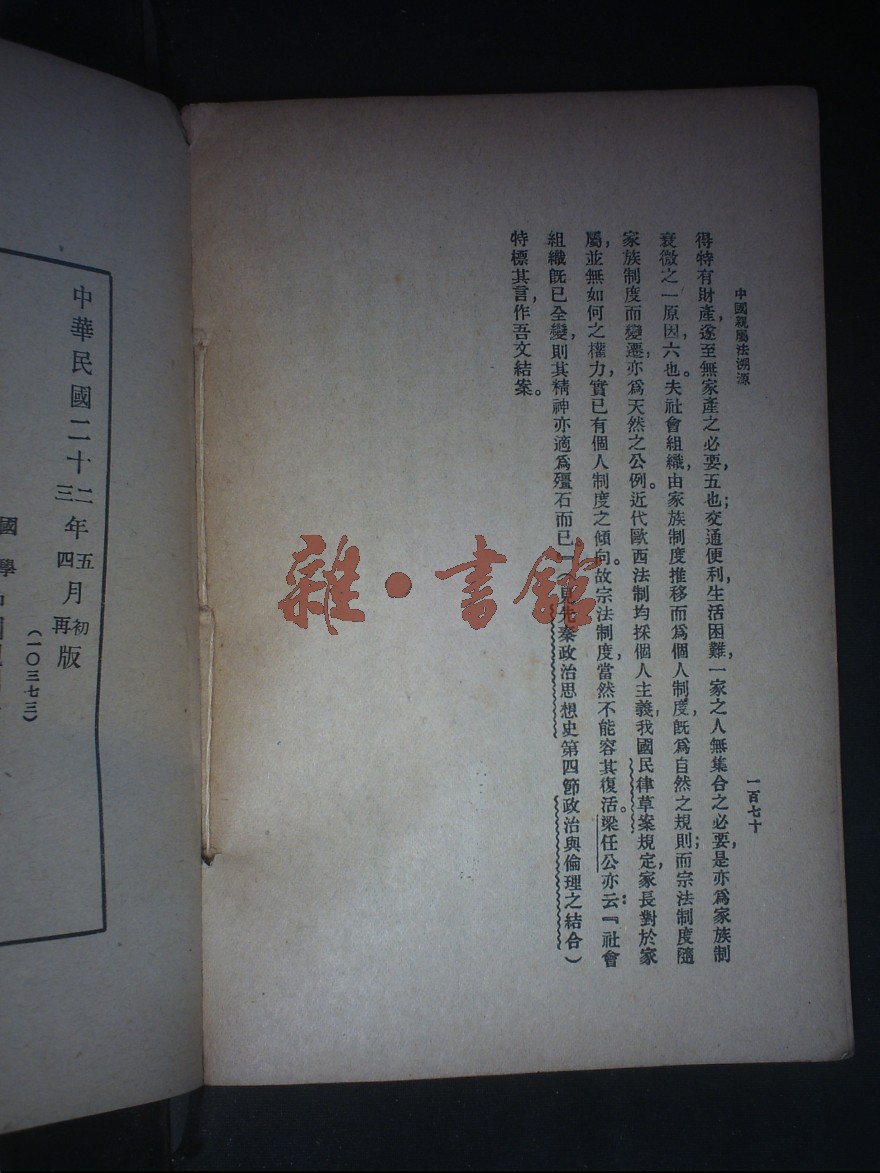 中國親屬法溯源
一百七十
得特有財產，遂至無家產之必要，五也；交通便利，生活困難，一家之人無集合之必要，是亦爲家族制
衰微之一原因，六也。夫社會組織，由家族制度推移而爲個人制度，旣爲自然之規則；而宗法制度隨
家族制度而變遷，亦爲天然之公例。近代歐西法制均採個人主義，我國民律草案規定，家長對於家
屬，並無如何之權力，實已有個人制度之傾向。故宗法制度，當然不能容其復活。梁任公亦云：『社會
組織旣已全變，則其精神亦適爲殭石而已』（見先秦政治思想史第四節政治與倫理之結合）
特標其言，作吾文結案。
中華民國二十二年五月初版
三四再
（一〇三七三）
國學
雜·書館